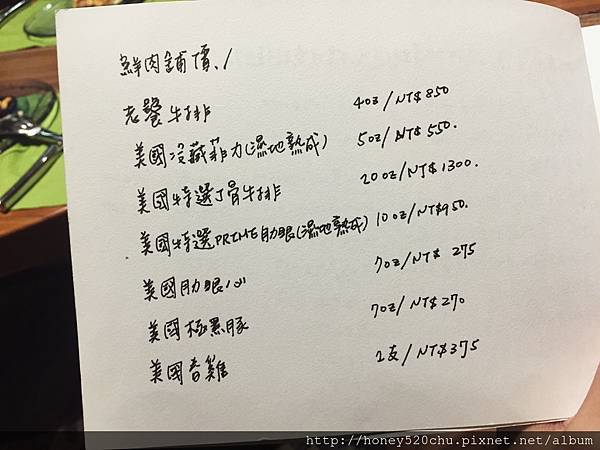 鮮肉鋪價./
老饕牛排 4oz/NT$850
美國冷藏菲力(濕地熟成) 5oz/NT$550.
美國特選丁骨牛排 20oz/NT$1300.
美國特選PRIME肋眼(濕地熟成) 10oz/NT$950.
美國肋眼心 7oz/NT$275
美國極黑豚 7oz/NT$270
美國香雞 2支/NT$375
http://honey520chu.pixnet.net/album